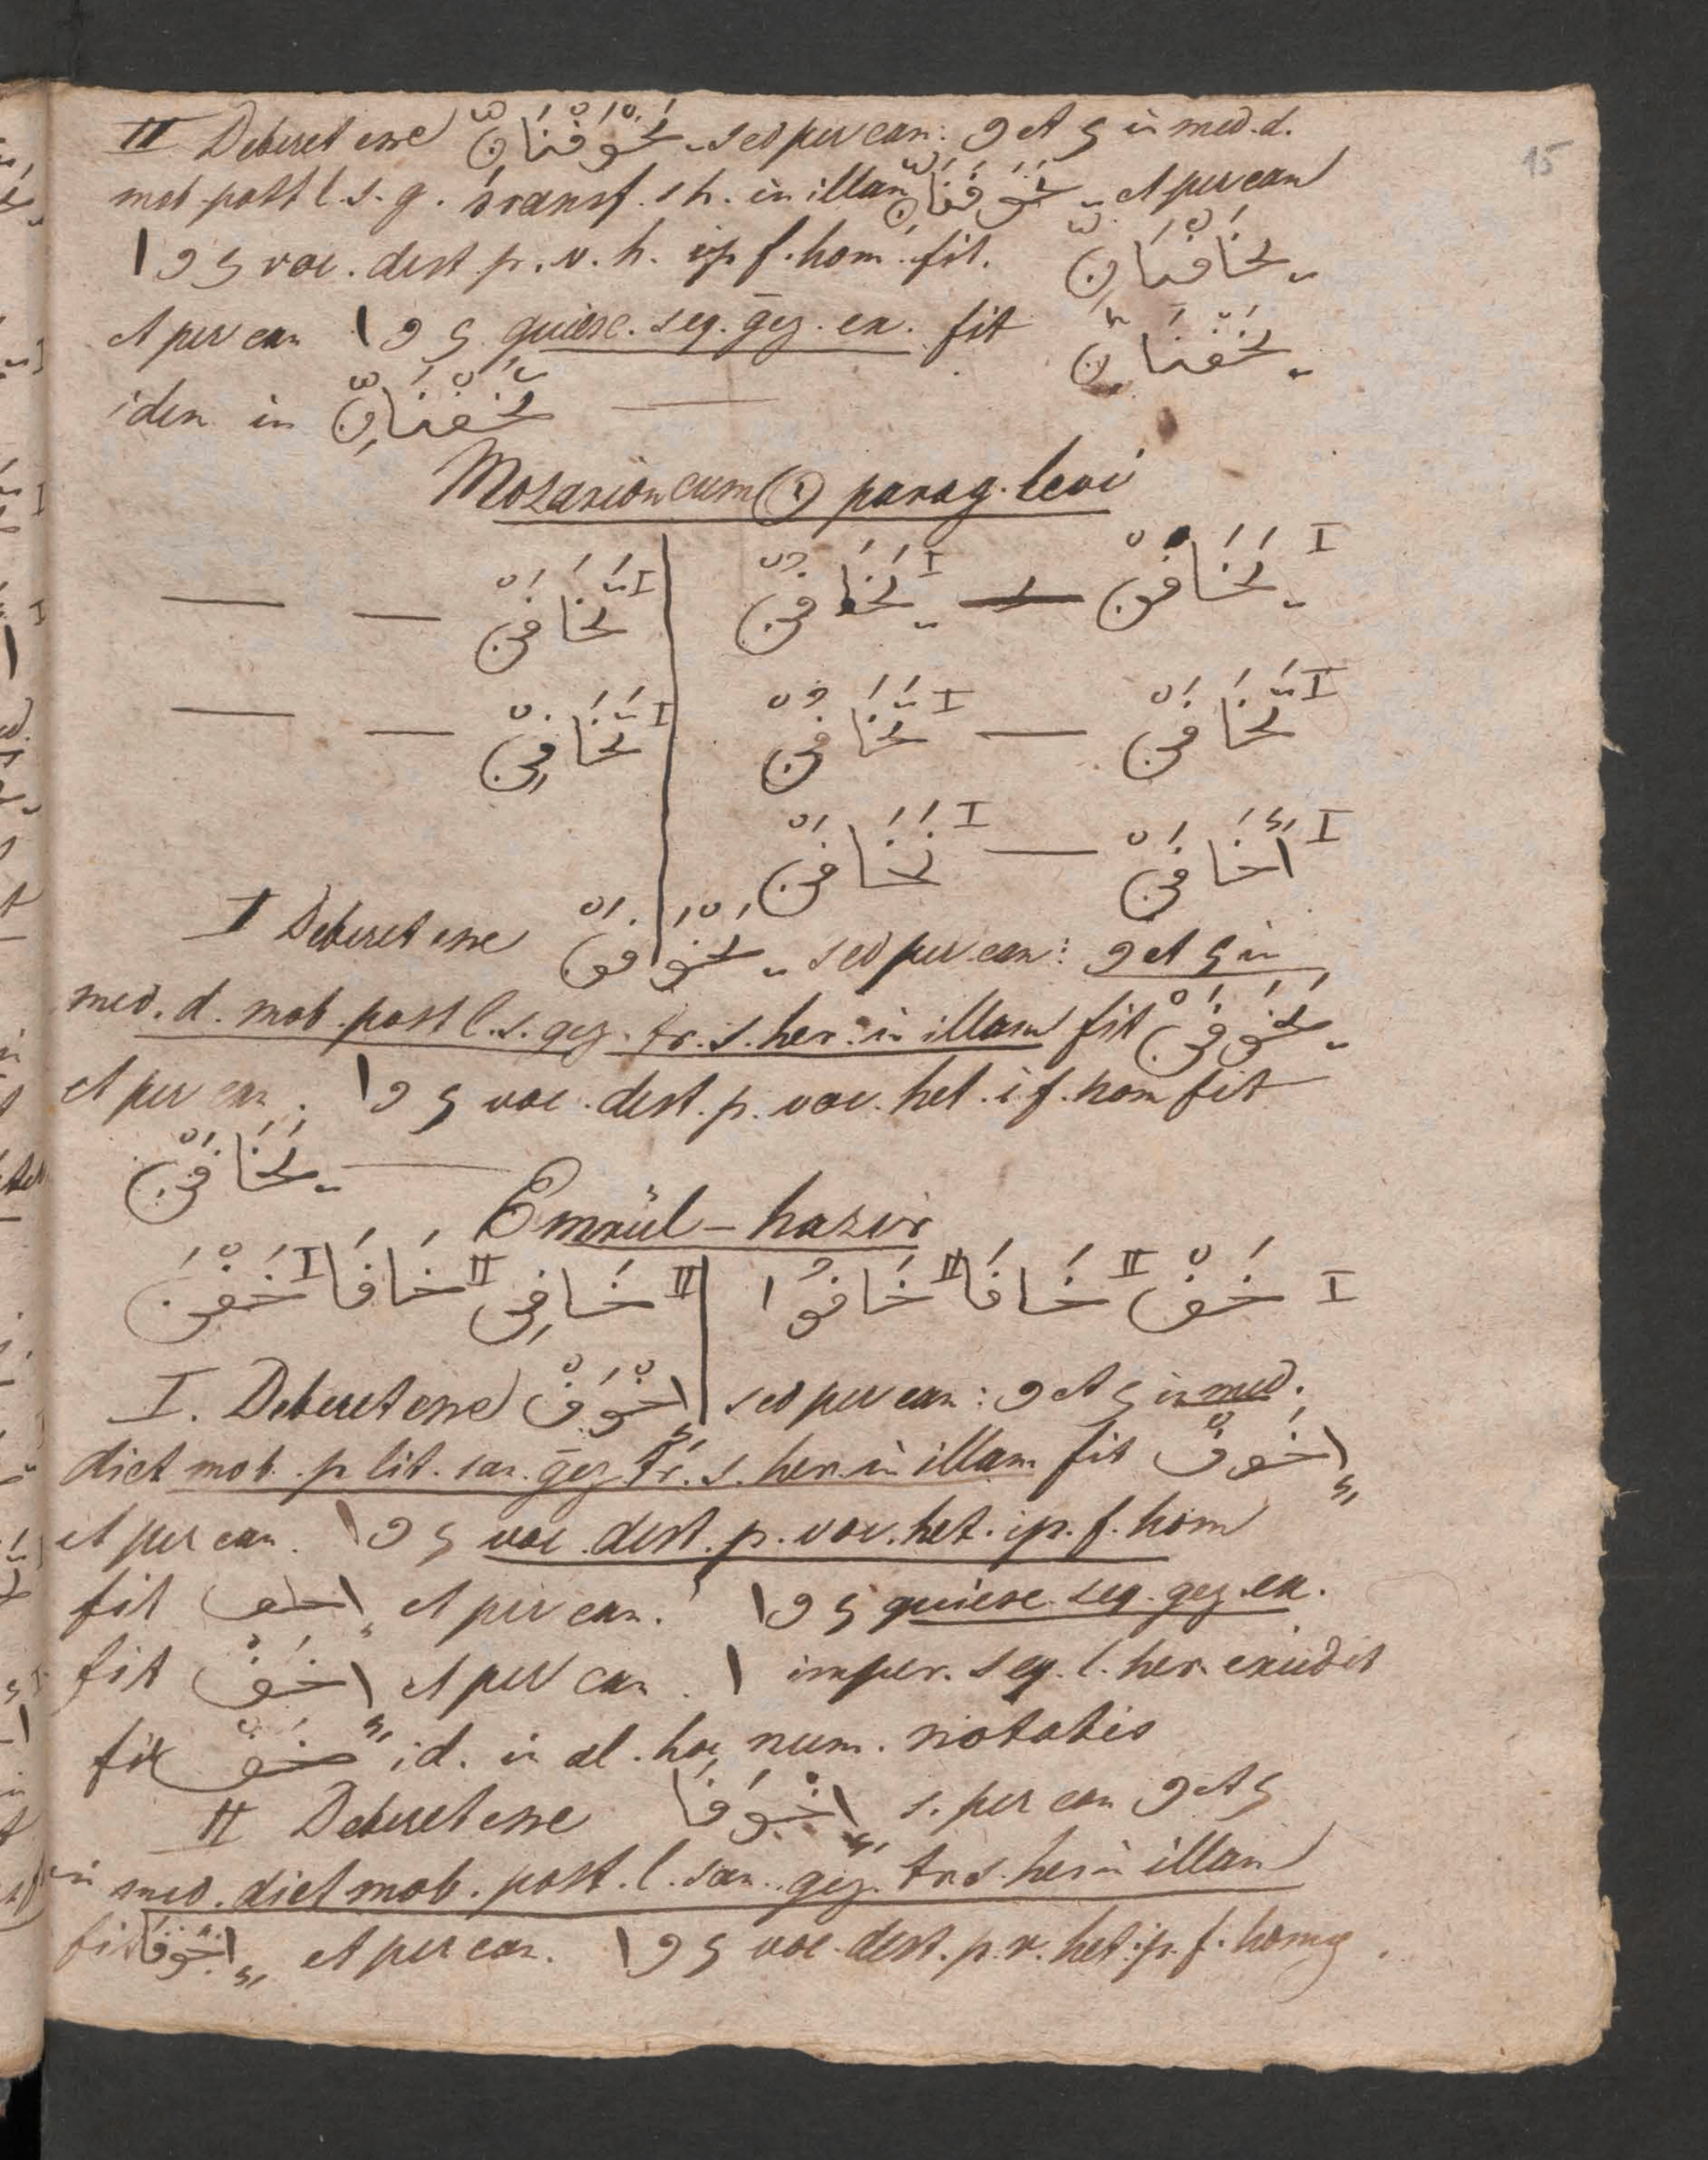 15
II Deberet esse يَخْوَفْنَانِّ sed per can: و et ی in med. d.
mob. post l. s. g. transf. s h. in illam يَخَوَفْنَانِّ et per can
ا و ی voc. dest. p. v. h. ip f. hom. fit. يَخَافْنَانِّ
et per can ا و ی quiesc. seq. gez. ex. fit يَخَفْنَانِّ
idem in تَخَفْنَانِّ —
Mozarion cum (ن) parag. levi
I يَخَافَنْ — I يَخَافُنْ | I تَخَافَنْ — —
I تَخَافَنْ — I تَخَافُنْ | I تَخَافِنْ — —
I أَخَافَنْ — I نَخَافَنْ
I Deberet esse يَخْوَفَنْ sed per can: و et ی in
med. d. mob. post l. s. gez. tr. s. her. in illam fit يَخَوَفَنْ
et per can. ا و ی voc. dest. p. voc. het. i f. hom fit
يَخَافَنْ —
Emrül-hazir
I خَفْ II خَافَا II خَافُوا | II خَافِى II خَافَا I خَفْنَ
I. Deberet esse اِخْوَفْ sed per can: و et ی in med.
dict mob. p lit. san. gez tr. s. her. in illam fit اِخَوَفْ
et per can. ا و ی voc. dest. p. voc. het. ip. f. hom
fit اِخاف et per can. ا و ی quiesc. seq. gez. ex.
fit اِخَفْ et per can. ا imper. seq. l. her. excidit
fit خَفْ id. in al. hoc num. notatis
II Deberet esse اِخْوَفَا s. per can و et ی
in med. dict mob. post. l. san. gez. tr. s. her in illam
fit اِخَوَفَا et per can. ا و ی voc. dest. p. v. het. ip. f. homg.